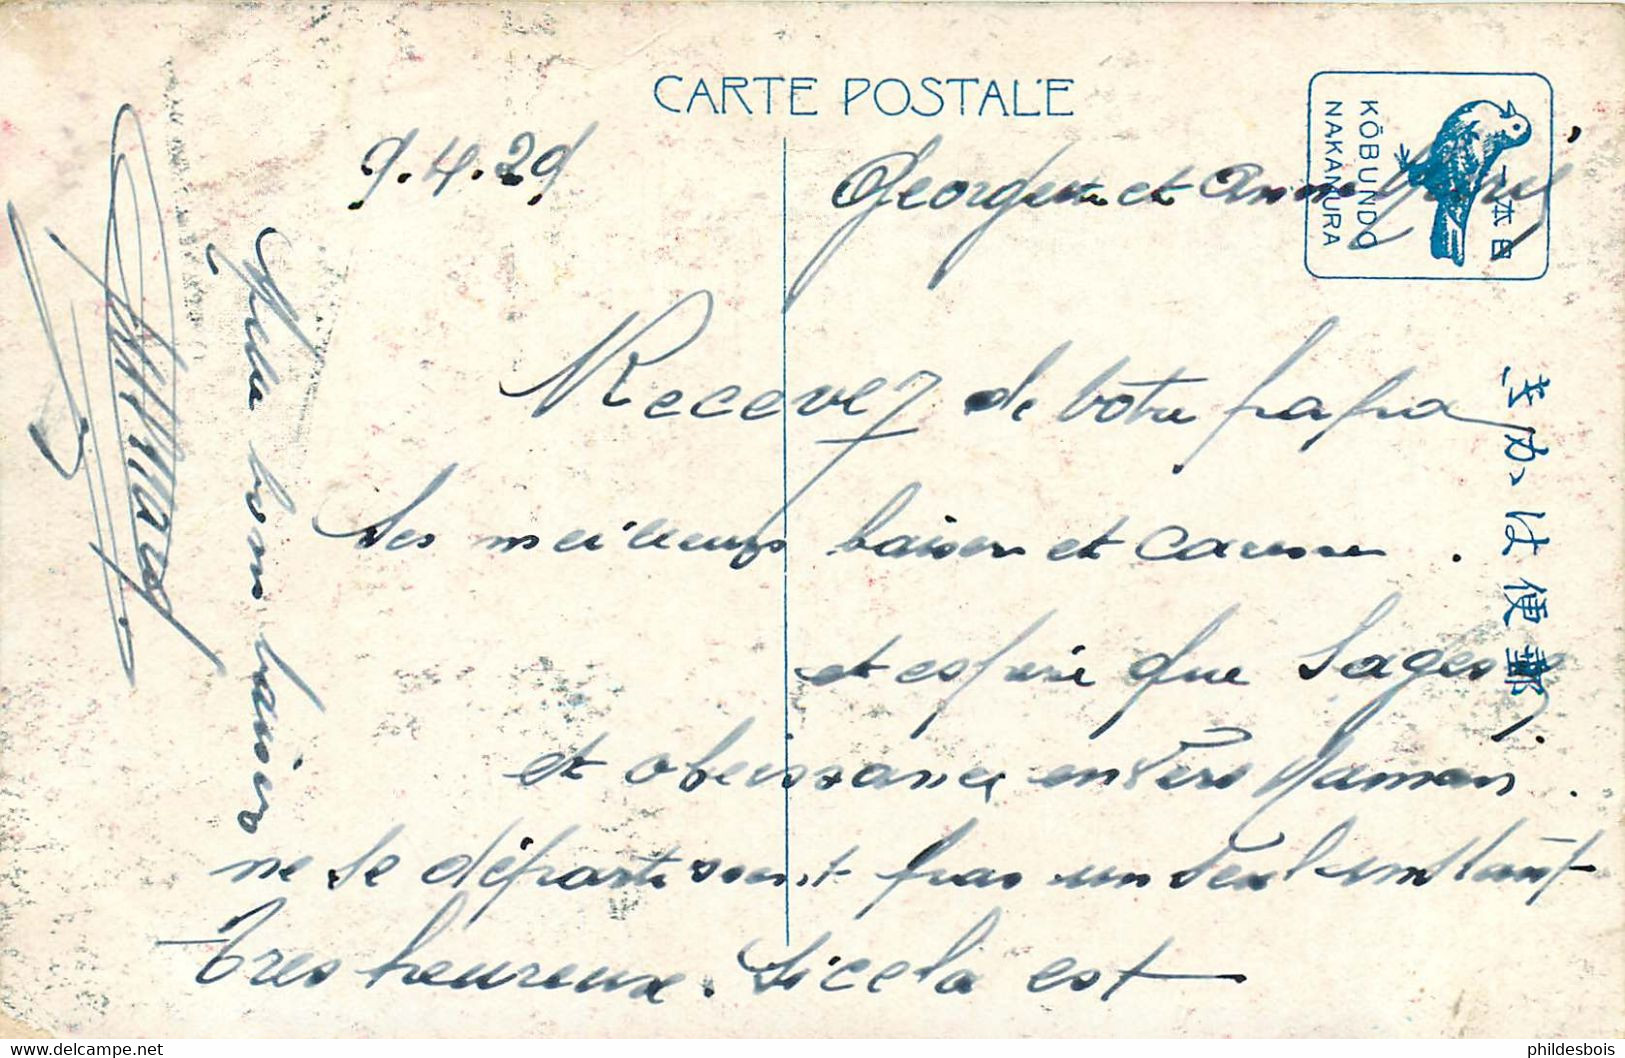 CARTE POSTALE
KŌBUNDO
NAKAMURA
本日
きかは便郵
9.4.29
Georgette et Anne Marie
Recevez de votre papa
ses meilleurs baisers et caresses.
et espère que Sages
et obeissance envers Maman.
ne se départissent pas un seul instant
Tres heureux. Si cela est
bons baisers
phildesbois